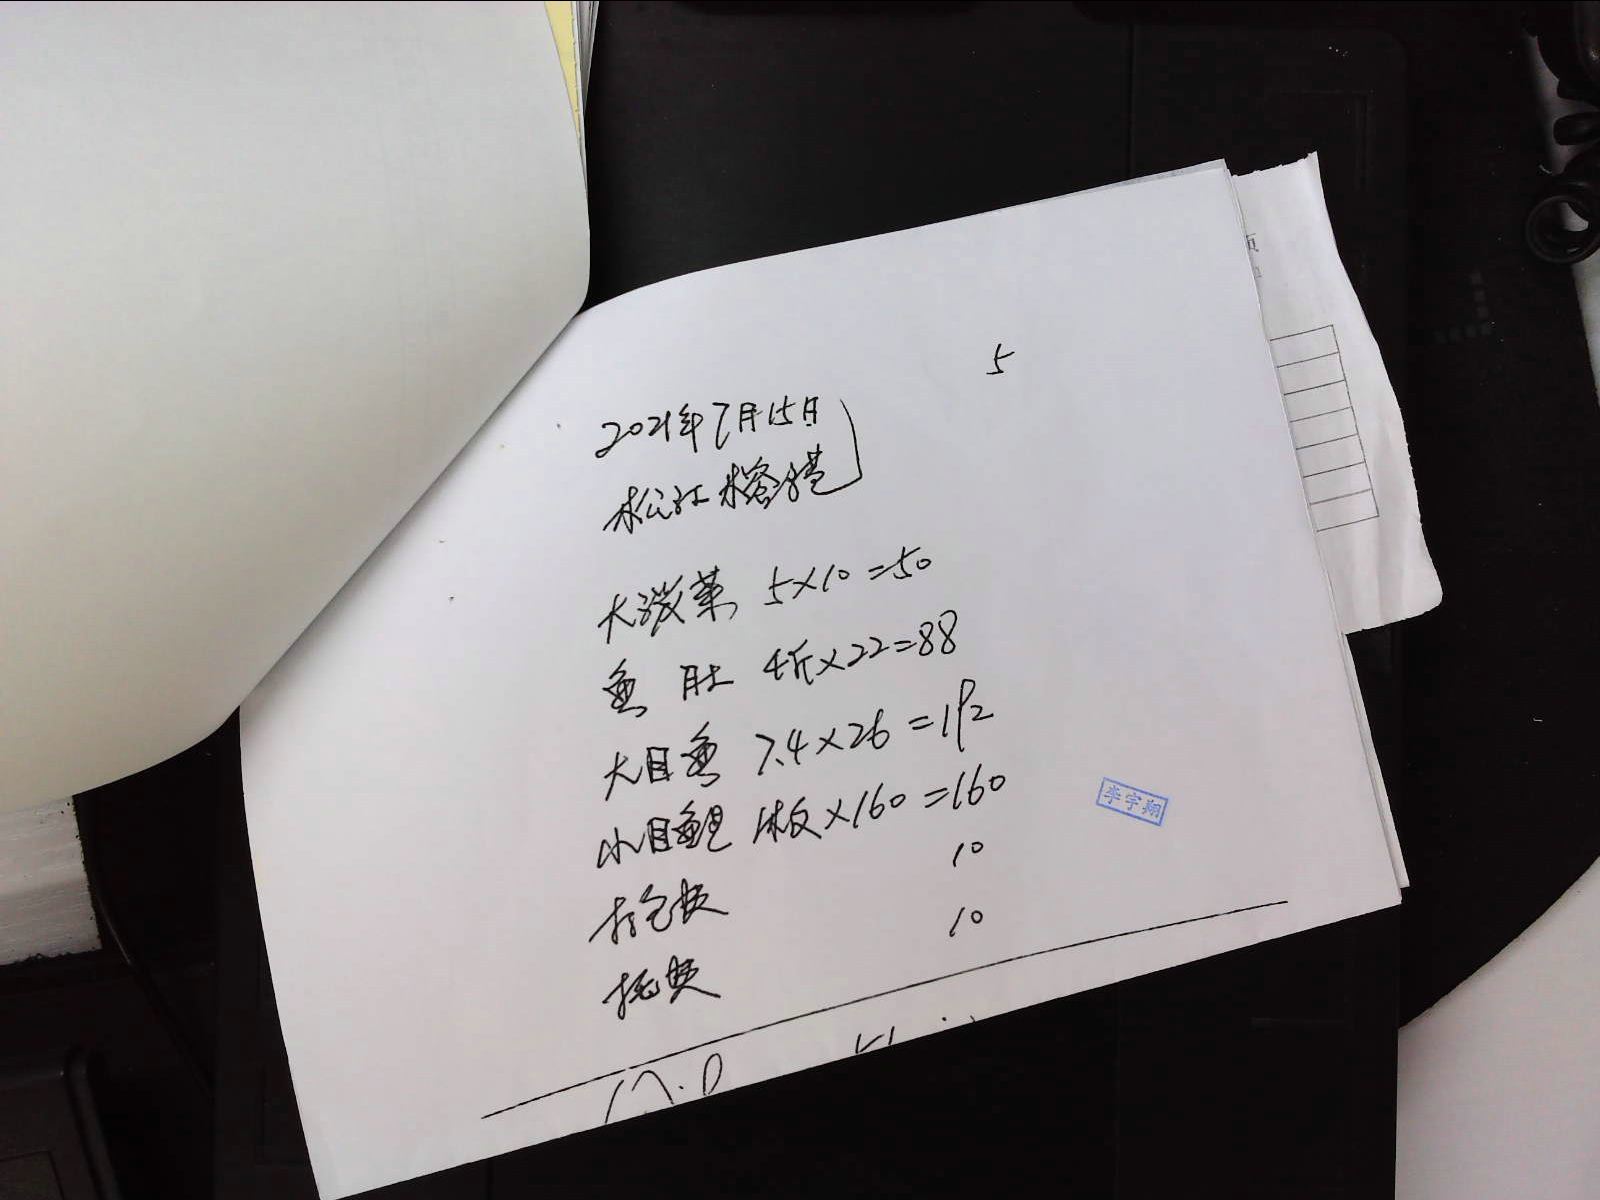 5
2021年7月15日
松江榕港
大淡菜 5×10=50
鱼肚 4斤×22=88
大目鱼 7.4×26=192
小目鲲 1板×160=160
打包费 10
托费 10
李宇翔